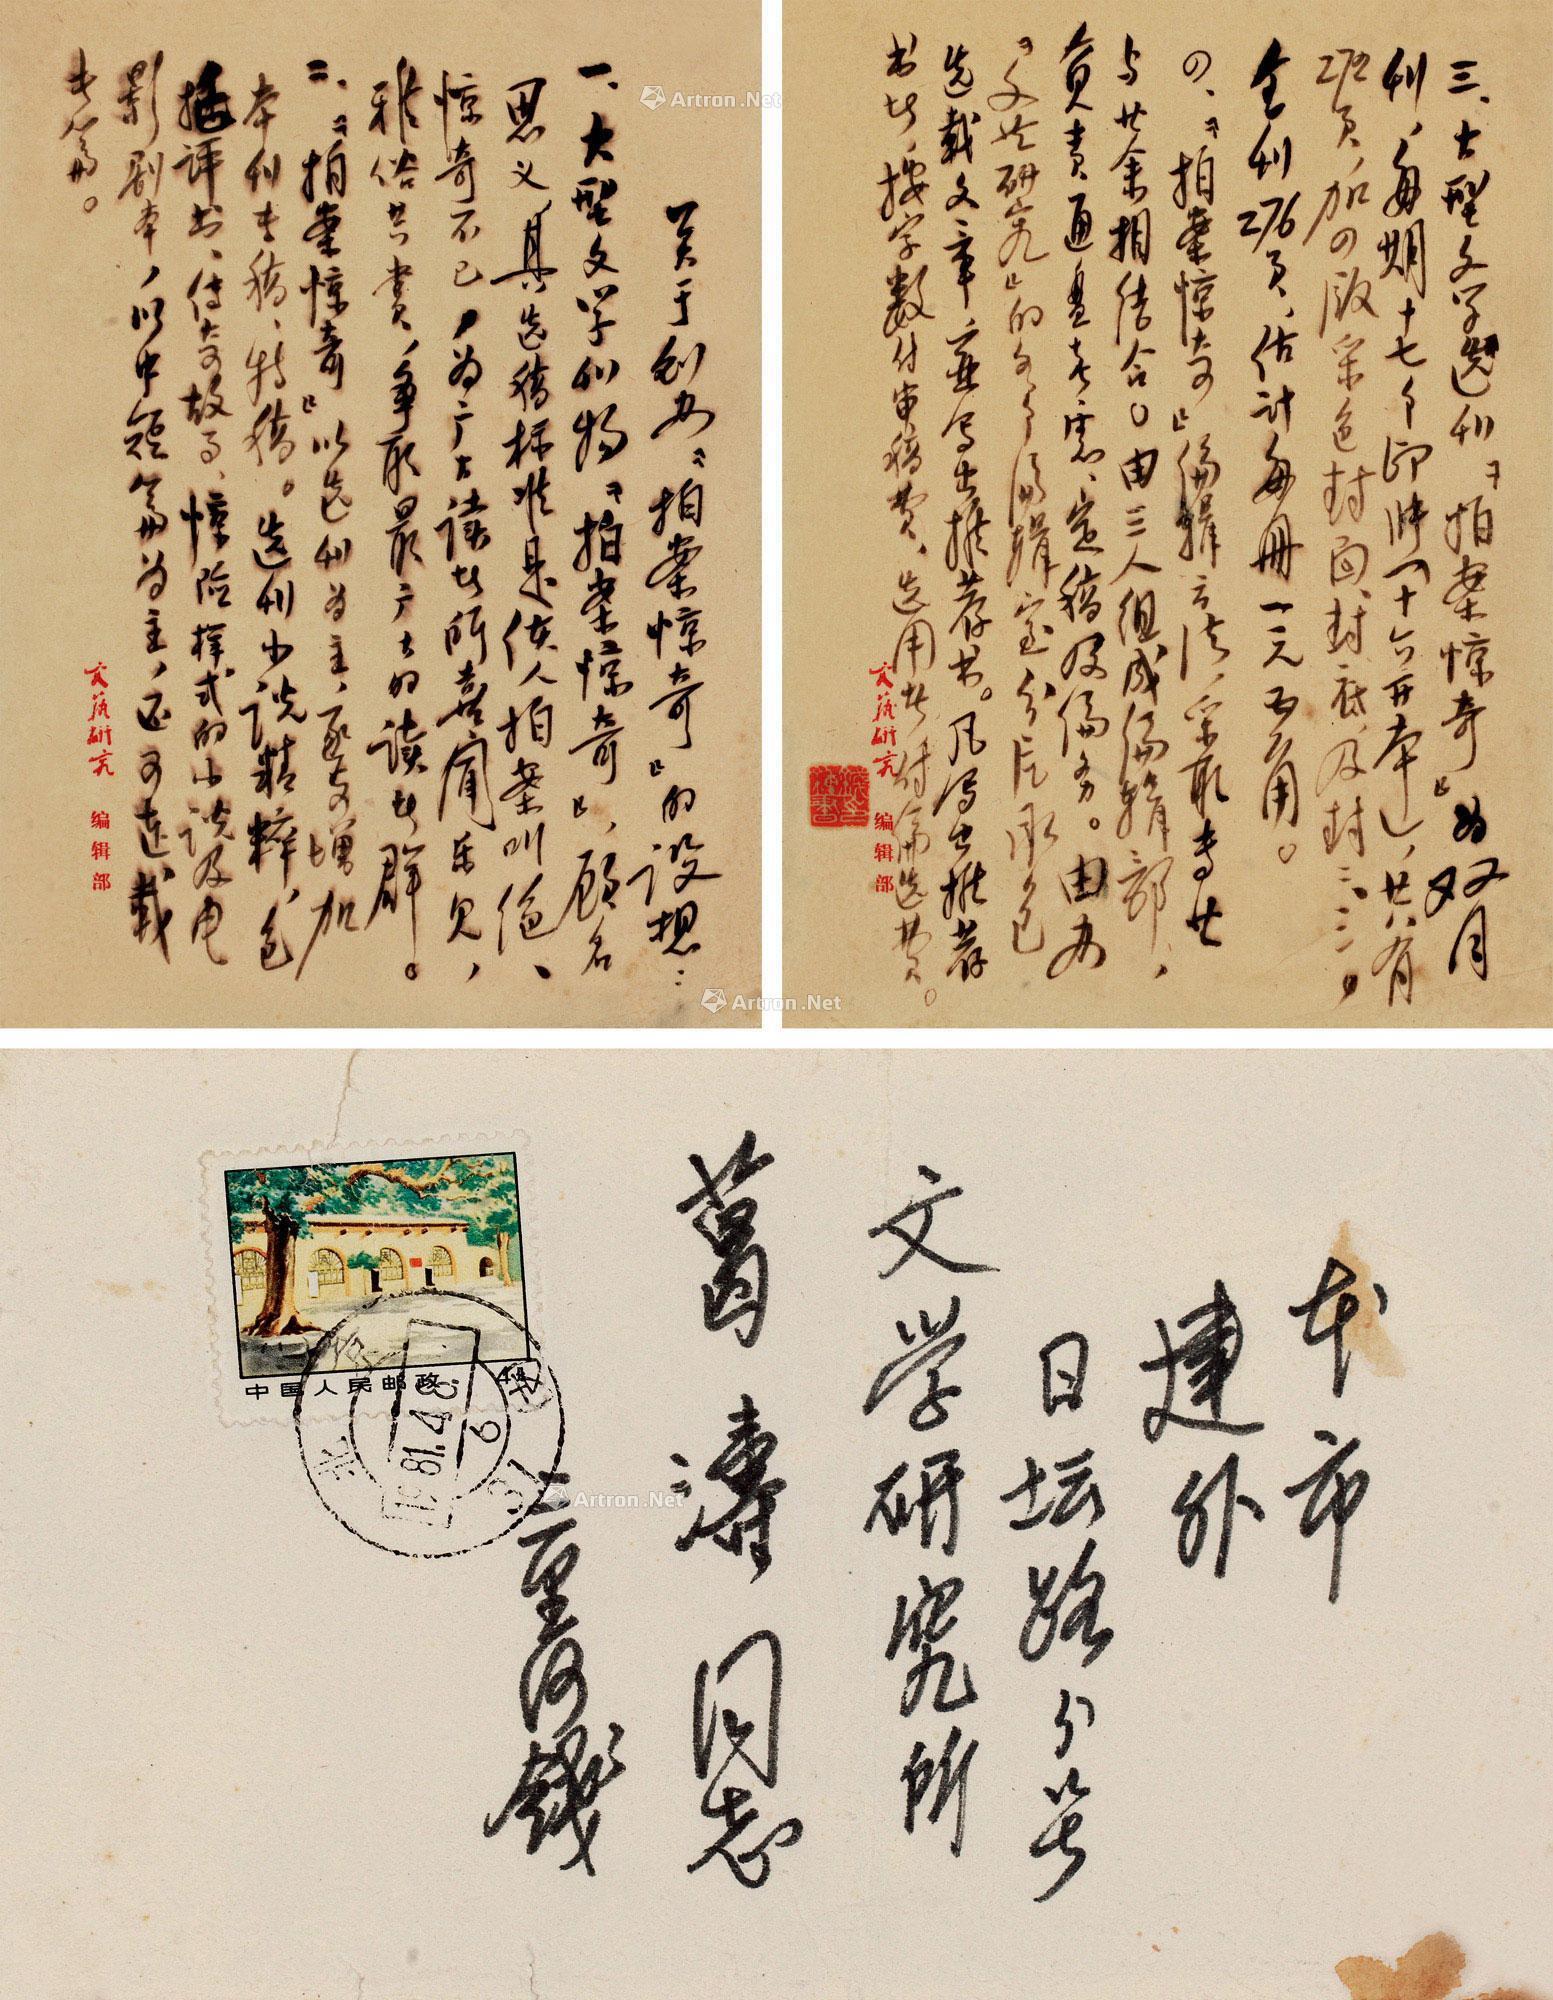 关于创办《拍案惊奇》的设想：
一、大型文学刊物《拍案惊奇》，顾名
思义，其选稿标准是使人拍案叫绝、
惊奇不已，为广大读者所喜闻乐见，
雅俗共赏，争取最广大的读者群。
二、《拍案惊奇》以选刊为主，逐步增加
本刊专稿、特稿。选刊小说精粹，包
括评书、传奇故事、惊险样式的小说及电
影剧本，以中短篇为主，还可连载
长篇。
文艺研究 编辑部
三、大型文学选刊《拍案惊奇》为双月
刊，每期十七个印张（十六开本），共有
272页，加四版彩色封面、封底及封二、三，
全刊276页，估计每册一元五角。
四、《拍案惊奇》编辑方法，采取专共
与业余相结合。由三人组成编辑部，
负责通盘考虑、定稿及编务。由办
《文艺研究》的各个编辑室分片承包
选载文章，并写出推荐书。凡写出推荐
书者，按字数付审稿费、选用者付编选费。
文艺研究 编辑部
Artron.Net
Artron.Net
本市
建外
日坛路6号
文学研究所
葛涛同志
中国人民邮政
北京
1981.4.
6
Artron.Net